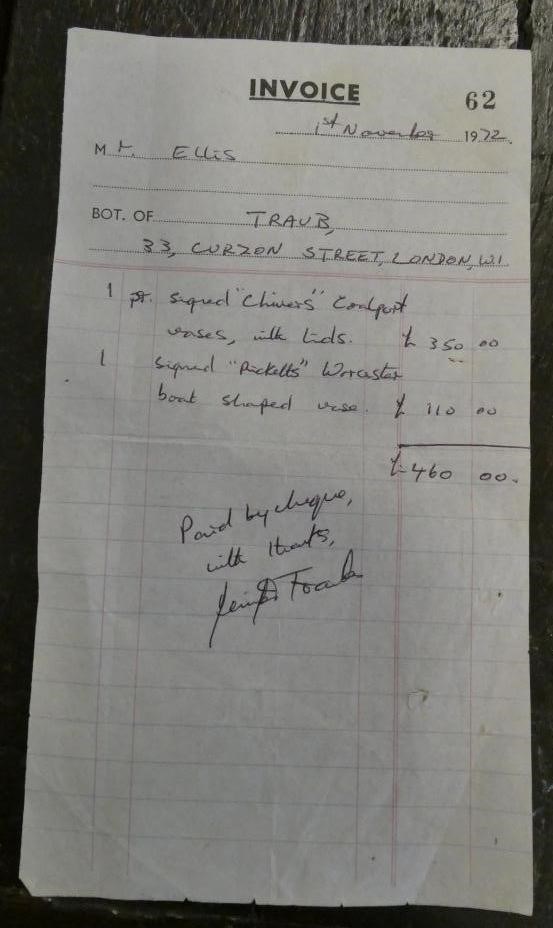 INVOICE
62
1st November 1972.
Mr. Ellis
BOT. OF TRAUB,
33, CURZON STREET, LONDON, W.1.
1 pr. signed "Chivers" Coalport
vases, with lids. £ 350 00
1 signed "Ricketts" Worcester
boat shaped vase. £ 110 00
£ 460 00.
Paid by cheque,
with thanks,
Traub